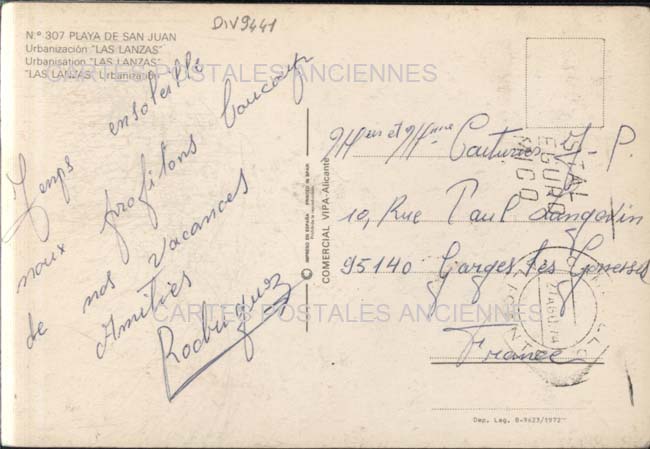 DIV9441
N.º 307 PLAYA DE SAN JUAN
Urbanización "LAS LANZAS"
Urbanisation "LAS LANZAS"
"LAS LANZAS" Urbanization
CARTES POSTALES ANCIENNES
Temps ensoleillé
nous profitons beaucoup
de nos vacances
Amitiés
Rodriguez
COMERCIAL VIPA-Alicante
IMPRESO EN ESPAÑA PRINTED IN SPAIN
Mr et Mme Couturier J-P.
10, Rue Paul Langevin
95140 Garges les Gonesses
France
CARTES POSTALES ANCIENNES
Dep. Leg. B-9623/1972